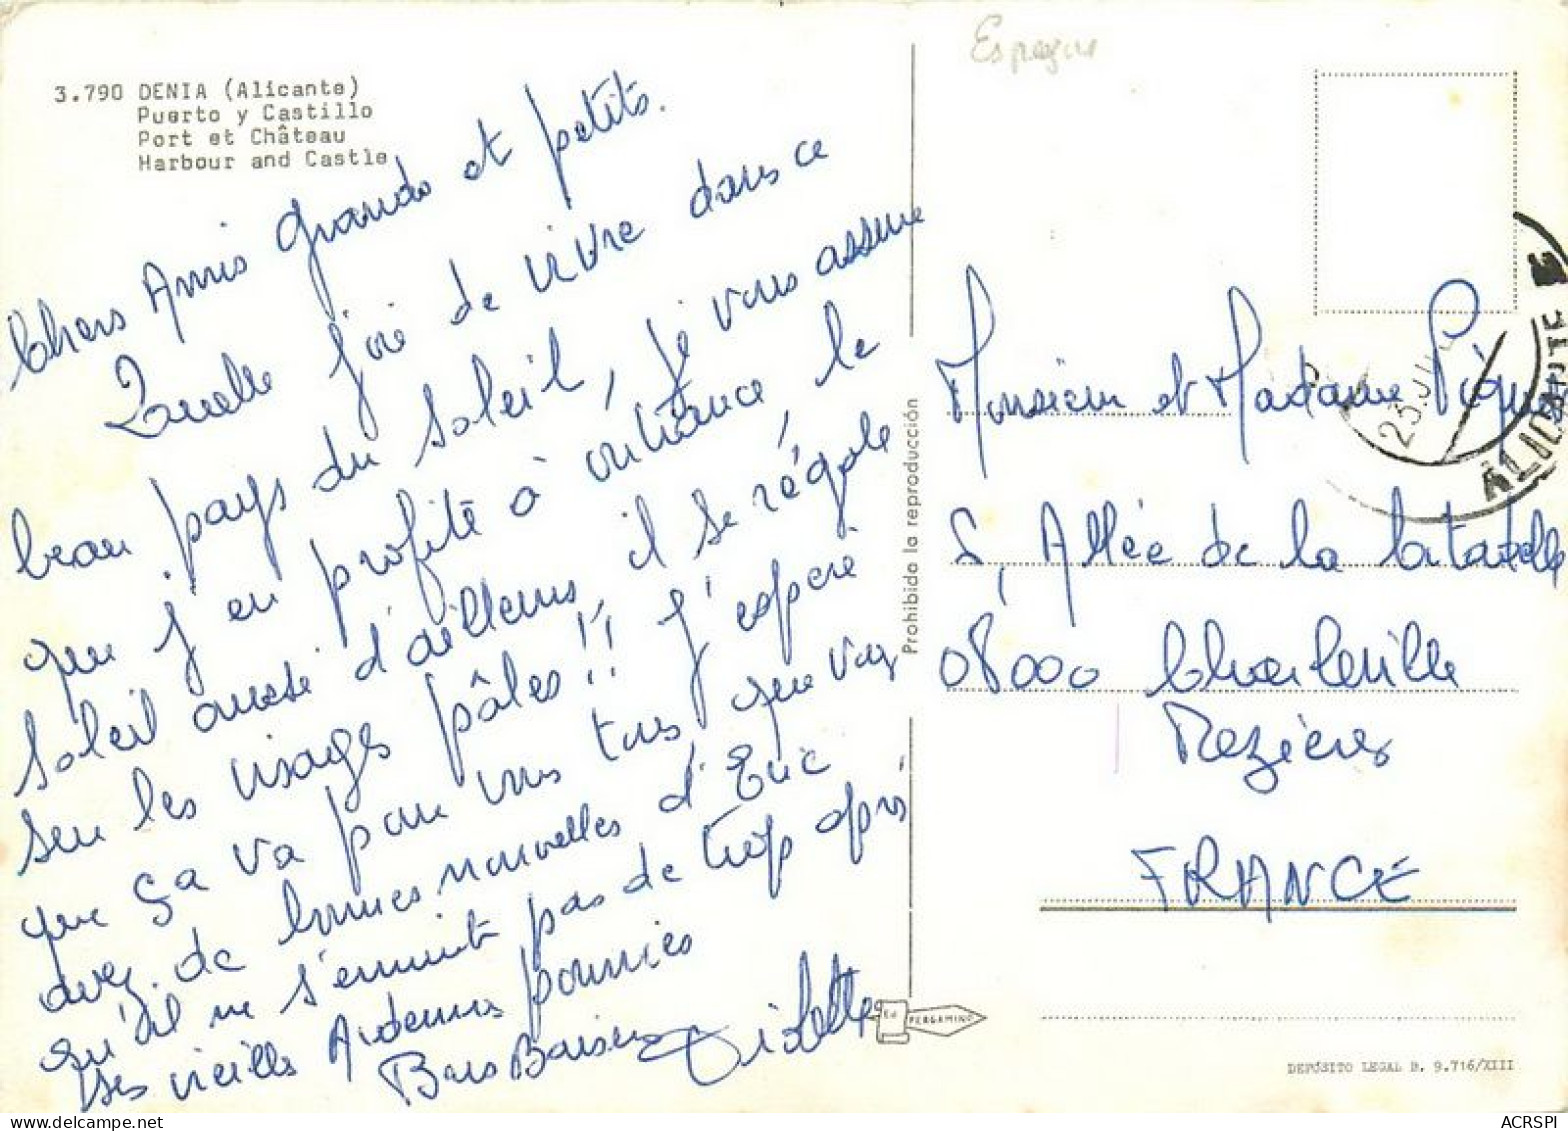 Espagne
3.790 DENIA (Alicante)
Puerto y Castillo
Port et Château
Harbour and Castle
Chers Amis grands et petits.
Quelle joie de vivre dans ce
beau pays du soleil, je vous assure
que j'en profite à outrance, le
soleil aussi d'ailleurs il se régale
sur les visages pâles!! J'espère
que ça va pour vous tous que vous
avez de bonnes nouvelles d'Eric
qu'il ne s'ennuit pas de trop après
ses vieilles Ardennes pourries
Bons Baisers
Prohibida la reproducción
Monsieur et Madame
5, Allée de la Citadelle
08000 Charleville
Mezières
FRANCE
23 JUN
ALICANTE
Ed. PERGAMINO
DEPÓSITO LEGAL B. 9.716/XIII
ACRSPI